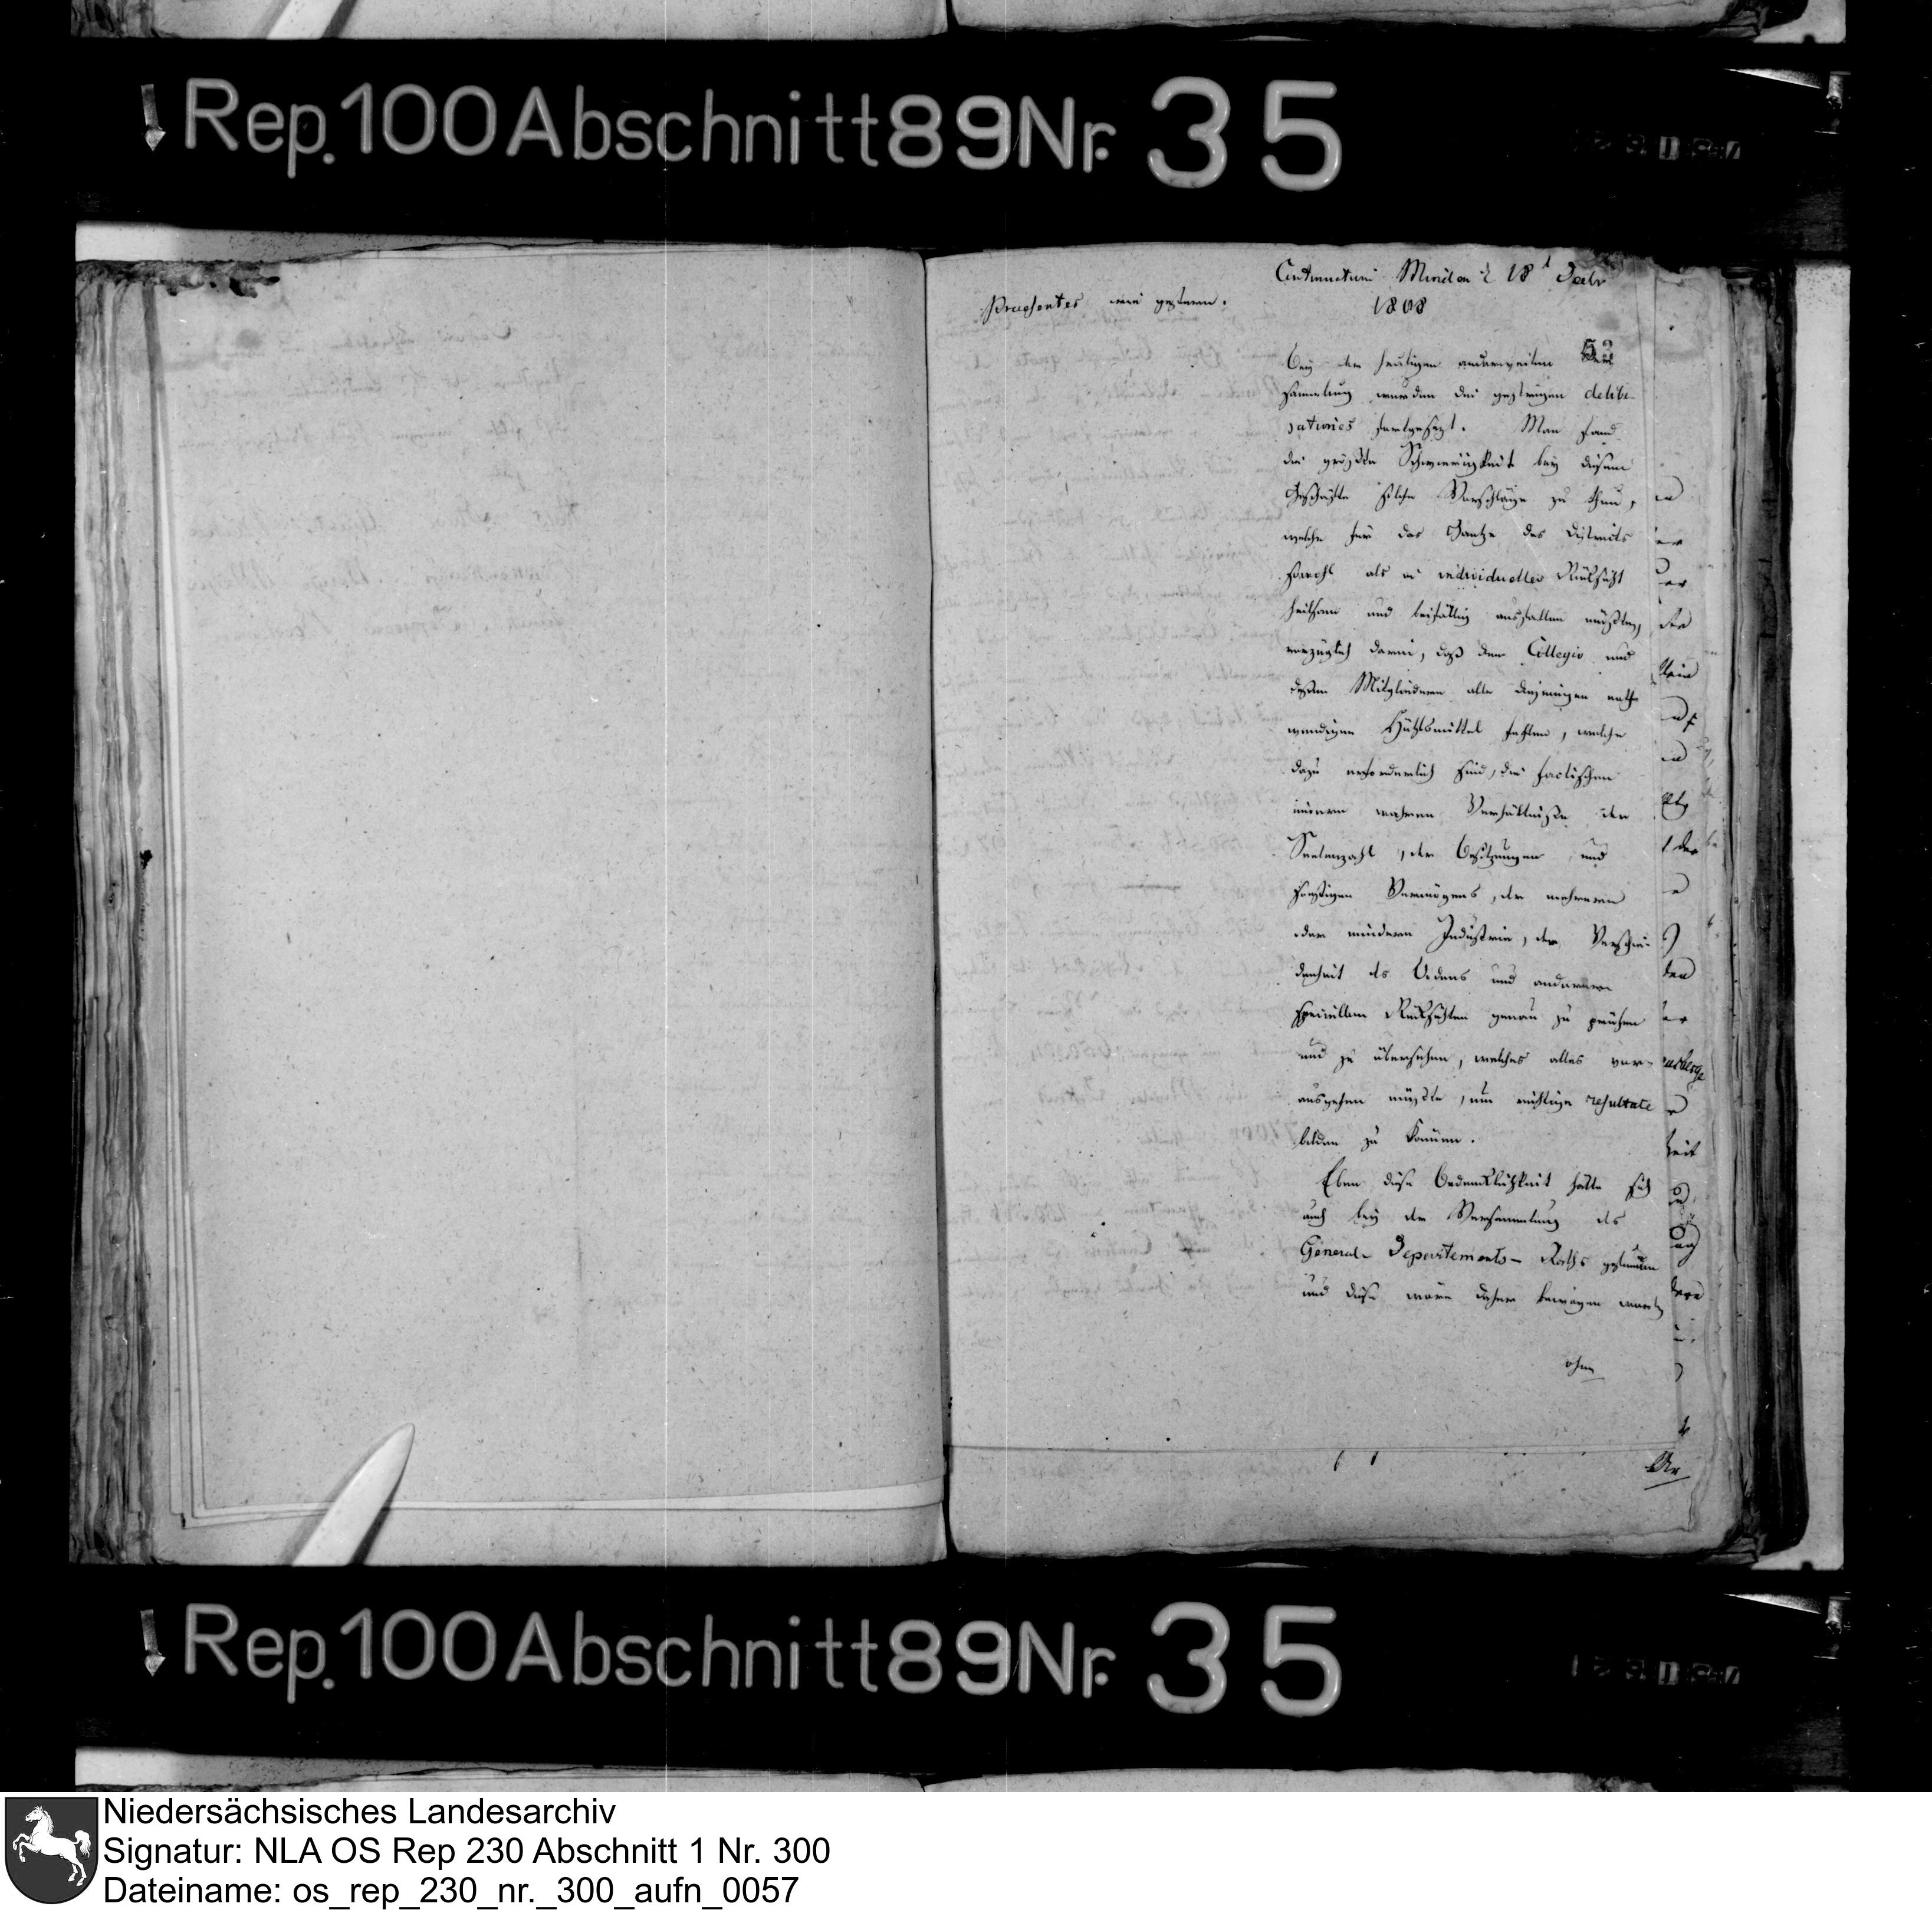 Rep. 100 Abschnitt 89 Nr. 35
Continuatum Minden d 18t Decbr
1808
Praesentes wie gestern.
53
Bey der heutigen anderweiten Ver
sammlung wurden die gestrigen delibe-
rationes fortgesezt. Man fand
die größte Schwierigkeit bey diesem
Geschäfte solche Vorschläge zu thun,
welche für das Gantze des Districts
sowohl als in individueller Rüksicht
heilsam und beifällig ausfallen müßten,
vorzüglich darin, daß dem Collegio und
dessen Mitgliedern alle diejenigen noth
wendigen Hülfsmittel fehlen, welche
dazu erforderlich sind, die factischen
innern wahren Verhältniße der
Seelenzahl, der Besitzungen und
sonstigen Vermögens, der mehreren
oder mindern Industrie, der Verschie-
denheit des Bodens und anderer
speciellen Rüksichten genau zu prüfen
und zu übersehen, welches alles vor-
ausgehen müßte, um richtige resultate
bilden zu können.
Eben diese Bedenklichkeit hätte sich
auch bey der Versammlung des
General-Departements-Raths gefunden
und diese wäre daher bewogen worden
ohne
Rep. 100 Abschnitt 89 Nr. 35
Niedersächsisches Landesarchiv
Signatur: NLA OS Rep 230 Abschnitt 1 Nr. 300
Dateiname: os_rep_230_nr._300_aufn_0057